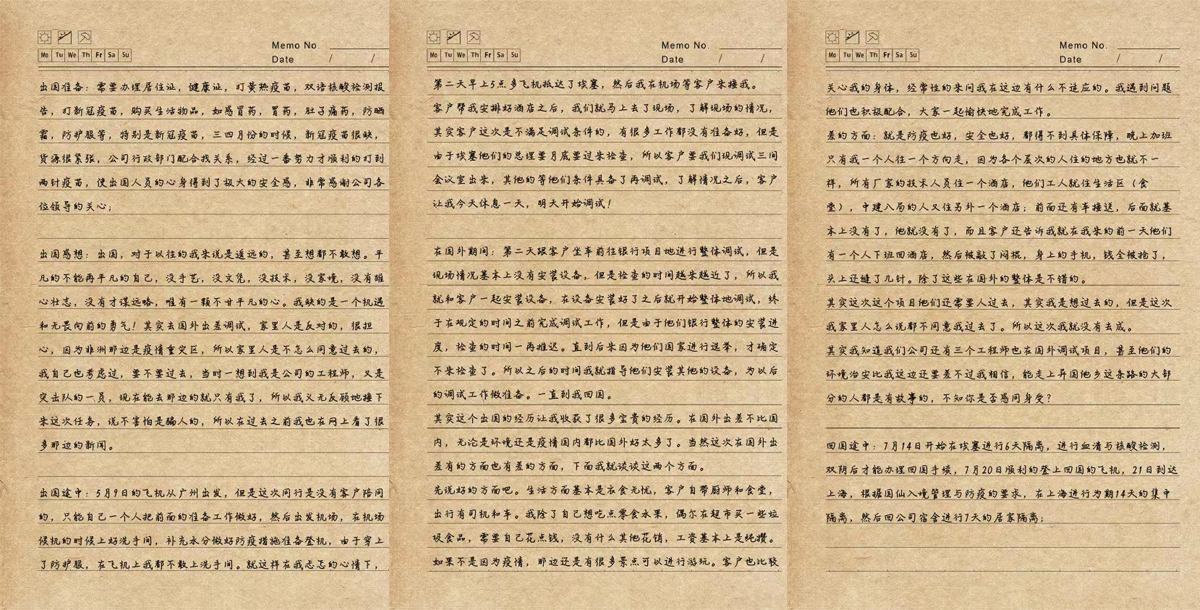 Memo No.
Mo Tu We Th Fr Sa Su
Date / /
出国准备：需要办理居住证，健康证，打黄热疫苗，双语核酸检测报
告，打新冠疫苗，购买生活物品，如感冒药，胃药，肚子痛药，防晒
霜，防护服等，特别是新冠疫苗，三四月份的时候，新冠疫苗很缺，
货源很紧张，公司行政部门配合我关系，经过一番努力才顺利的打到
两针疫苗，使出国人员的心身得到了极大的安全感，非常感谢公司各
位领导的关心；
出国感想：出国，对于以往的我来说是遥远的，甚至想都不敢想。平
凡的不能再平凡的自己，没手艺，没文凭，没技术，没家境，没有雄
心壮志，没有才谋远略，唯有一颗不甘平凡的心。我缺的是一个机遇
和无畏向前的勇气！其实去国外出差调试，家里人是反对的，很担
心，因为非洲那边是疫情重灾区，所以家里人是不怎么同意过去的，
我自己也考虑过，要不要过去，当时一想到我是公司的工程师，又是
突出队的一员，现在能去那边的就只有我了，所以我义无反顾地接下
来这次任务，说不害怕是骗人的，所以在过去之前我也在网上看了很
多那边的新闻。
出国途中：5月9日的飞机从广州出发，但是这次同行是没有客户陪同
的，只能自己一个人把前面的准备工作做好，然后出发机场，在机场
候机的时候上好洗手间，补充水分做好防疫措施准备登机，由于穿上
了防护服，在飞机上我都不敢上洗手间。就这样在我忐忑的心情下，
Memo No.
Mo Tu We Th Fr Sa Su
Date / /
第二天早上5点多飞机抵达了埃塞，然后我在机场等客户来接我。
客户帮我安排好酒店之后，我们就马上去了现场，了解现场的情况，
其实客户这次是不满足调试条件的，有很多工作都没有准备好，但是
由于埃塞他们的总理要月底要过来检查，所以客户要我们现调试三间
会议室出来，其他的等他们条件具备了再调试，了解情况之后，客户
让我今天休息一天，明天开始调试！
在国外期间：第二天跟客户坐车前往银行项目地进行整体调试，但是
现场情况基本上没有安装设备，但是检查的时间越来越近了，所以我
就和客户一起安装设备，在设备安装好了之后就开始整体地调试，终
于在规定的时间之前完成调试工作，但是由于他们银行整体的安装进
度，检查的时间一再推迟。直到后来因为他们国家进行选举，才确定
不来检查了。所以之后的时间我就指导他们安装其他的设备，为以后
的调试工作做准备。一直到我回国。
其实这个出国的经历让我收获了很多宝贵的经历。在国外出差不比国
内，无论是环境还是疫情国内都比国外好太多了。当然这次在国外出
差有的方面也有差的方面，下面我就谈谈这两个方面。
先说好的方面吧。生活方面基本是衣食无忧，客户自带厨师和食堂，
出行有司机和车。我除了自己想吃点零食水果，偶尔在超市买一些垃
圾食品，需要自己花点钱，没有什么其他花销，工资基本上是纯攒。
如果不是因为疫情，那边还是有很多景点可以进行游玩。客户也比较
Memo No.
Mo Tu We Th Fr Sa Su
Date / /
关心我的身体，经常性的来问我在这边有什么不适应的。我遇到问题
他们也积极配合，大家一起愉快地完成工作。
差的方面：就是防疫也好，安全也好，都得不到具体保障，晚上加班
只有我一个人往一个方向走，因为各个层次的人住的地方也就不一
样，所有厂家的技术人员住一个酒店，他们工人就住生活区（食
堂），中建八局的人又住另外一个酒店；前面还有车接送，后面就基
本上没有了，他就没有了，而且客户还告诉我就在我来的前一天他们
有一个人下班回酒店，然后被敲了闷棍，身上的手机，钱全被抢了，
头上还缝了几针。除了这些在国外的整体是不错的。
其实这次这个项目他们还需要人过去，其实我是想过去的，但是这次
我家里人怎么说都不同意我过去了。所以这次我就没有去成。
其实我知道我们公司还有三个工程师也在国外调试项目，甚至他们的
环境治安比我这边还要差不过我相信，能走上异国他乡这条路的大部
分的人都是有故事的，不知你是否感同身受？
回国途中：7月14日开始在埃塞进行6天隔离，进行血清与核酸检测，
双阴后才能办理回国手续，7月20日顺利的登上回国的飞机，21日到达
上海，根据国仙入境管理与防疫的要求，在上海进行为期14天的集中
隔离，然后回公司宿舍进行7天的居家隔离；